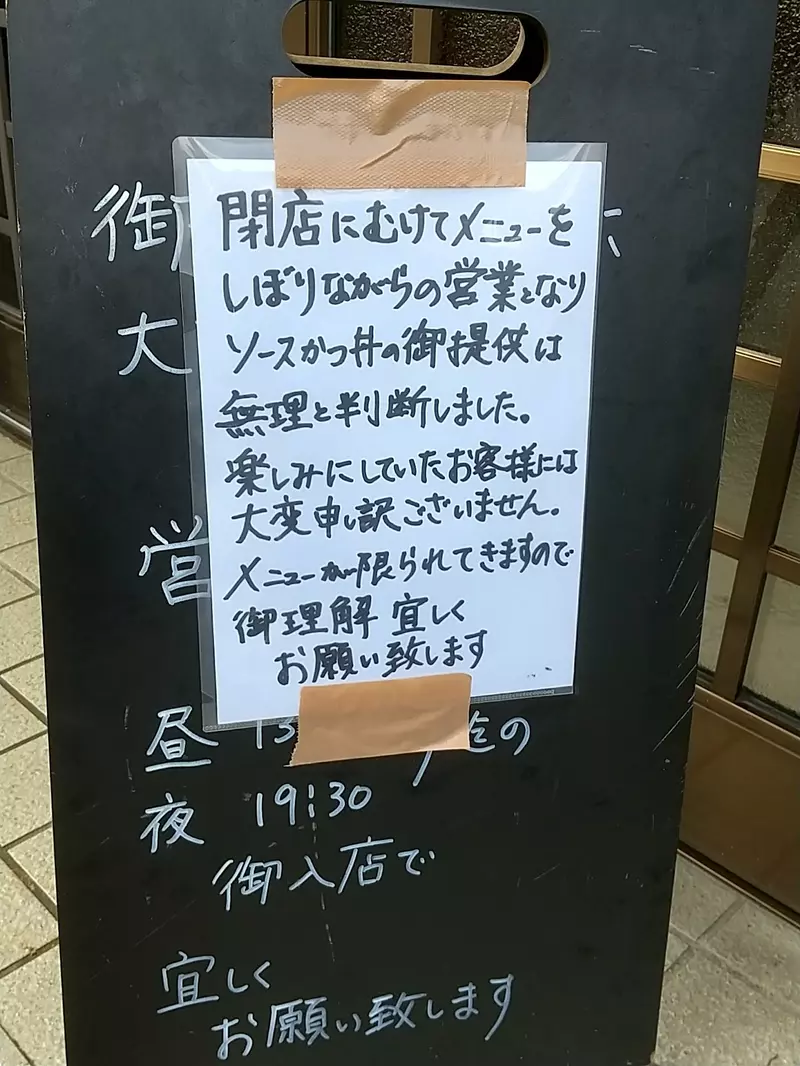 閉店にむけてメニューを
しぼりながらの営業となり
ソースかつ丼の御提供は
無理と判断しました。
楽しみにしていたお客様には
大変申し訳ございません。
メニューが限られてきますので
御理解 宜しく
お願い致します
御
大
営
昼 13 迄の
夜 19:30
御入店で
宜しく
お願い致します